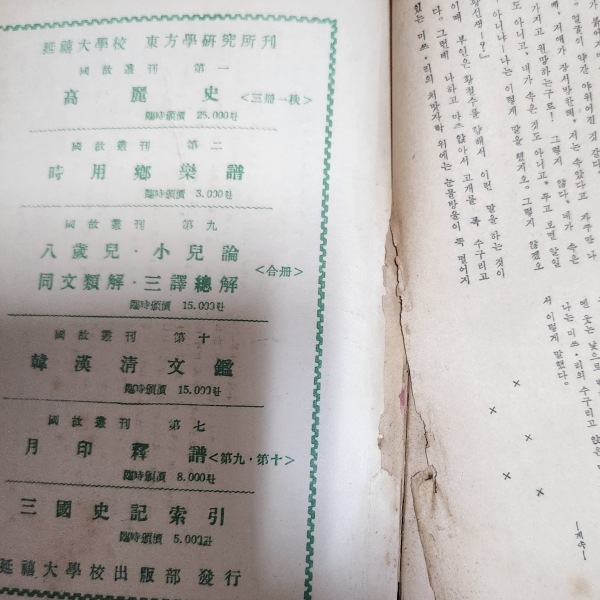 延禧大學校 東方學硏究所刊
國故叢刊 第一
高麗史 <三册一帙>
臨時頒價 25.000환
國故叢刊 第二
時用鄕樂譜
臨時頒價 3.000환
國故叢刊 第九
八歲兒・小兒論
同文類解・三譯總解 <合册>
臨時頒價 15.000환
國故叢刊 第十
韓漢淸文鑑
臨時頒價 15.000환
國故叢刊 第七
月印釋譜 <第九・第十>
臨時頒價 8.000환
三國史記索引
臨時頒價 5.000환
延禧大學校出版部 發行
얼굴이 약간 야위어진 것 같다.
가지고 원망하는구료! 그렇지 않다. 네가 속은
도 아니고, 내가 속은 것도 아니고, 두고 보면 알일
아니나—나는 이렇게 말을 했지요. 그렇지 않겠소
황선생!?」
이때 부인은 황철수를 향해서 이런 말을 하는 것이
다. 그런데 나하고 마즈 앉아서 고개를 폭 수구리고
있는 미쓰・리의 치맛자락 위에는 눈물방울이 뚝 떨어지
나는 미쓰・리의 수구리고 앉은
서 이렇게 말했다.
× × × ×
—계속—